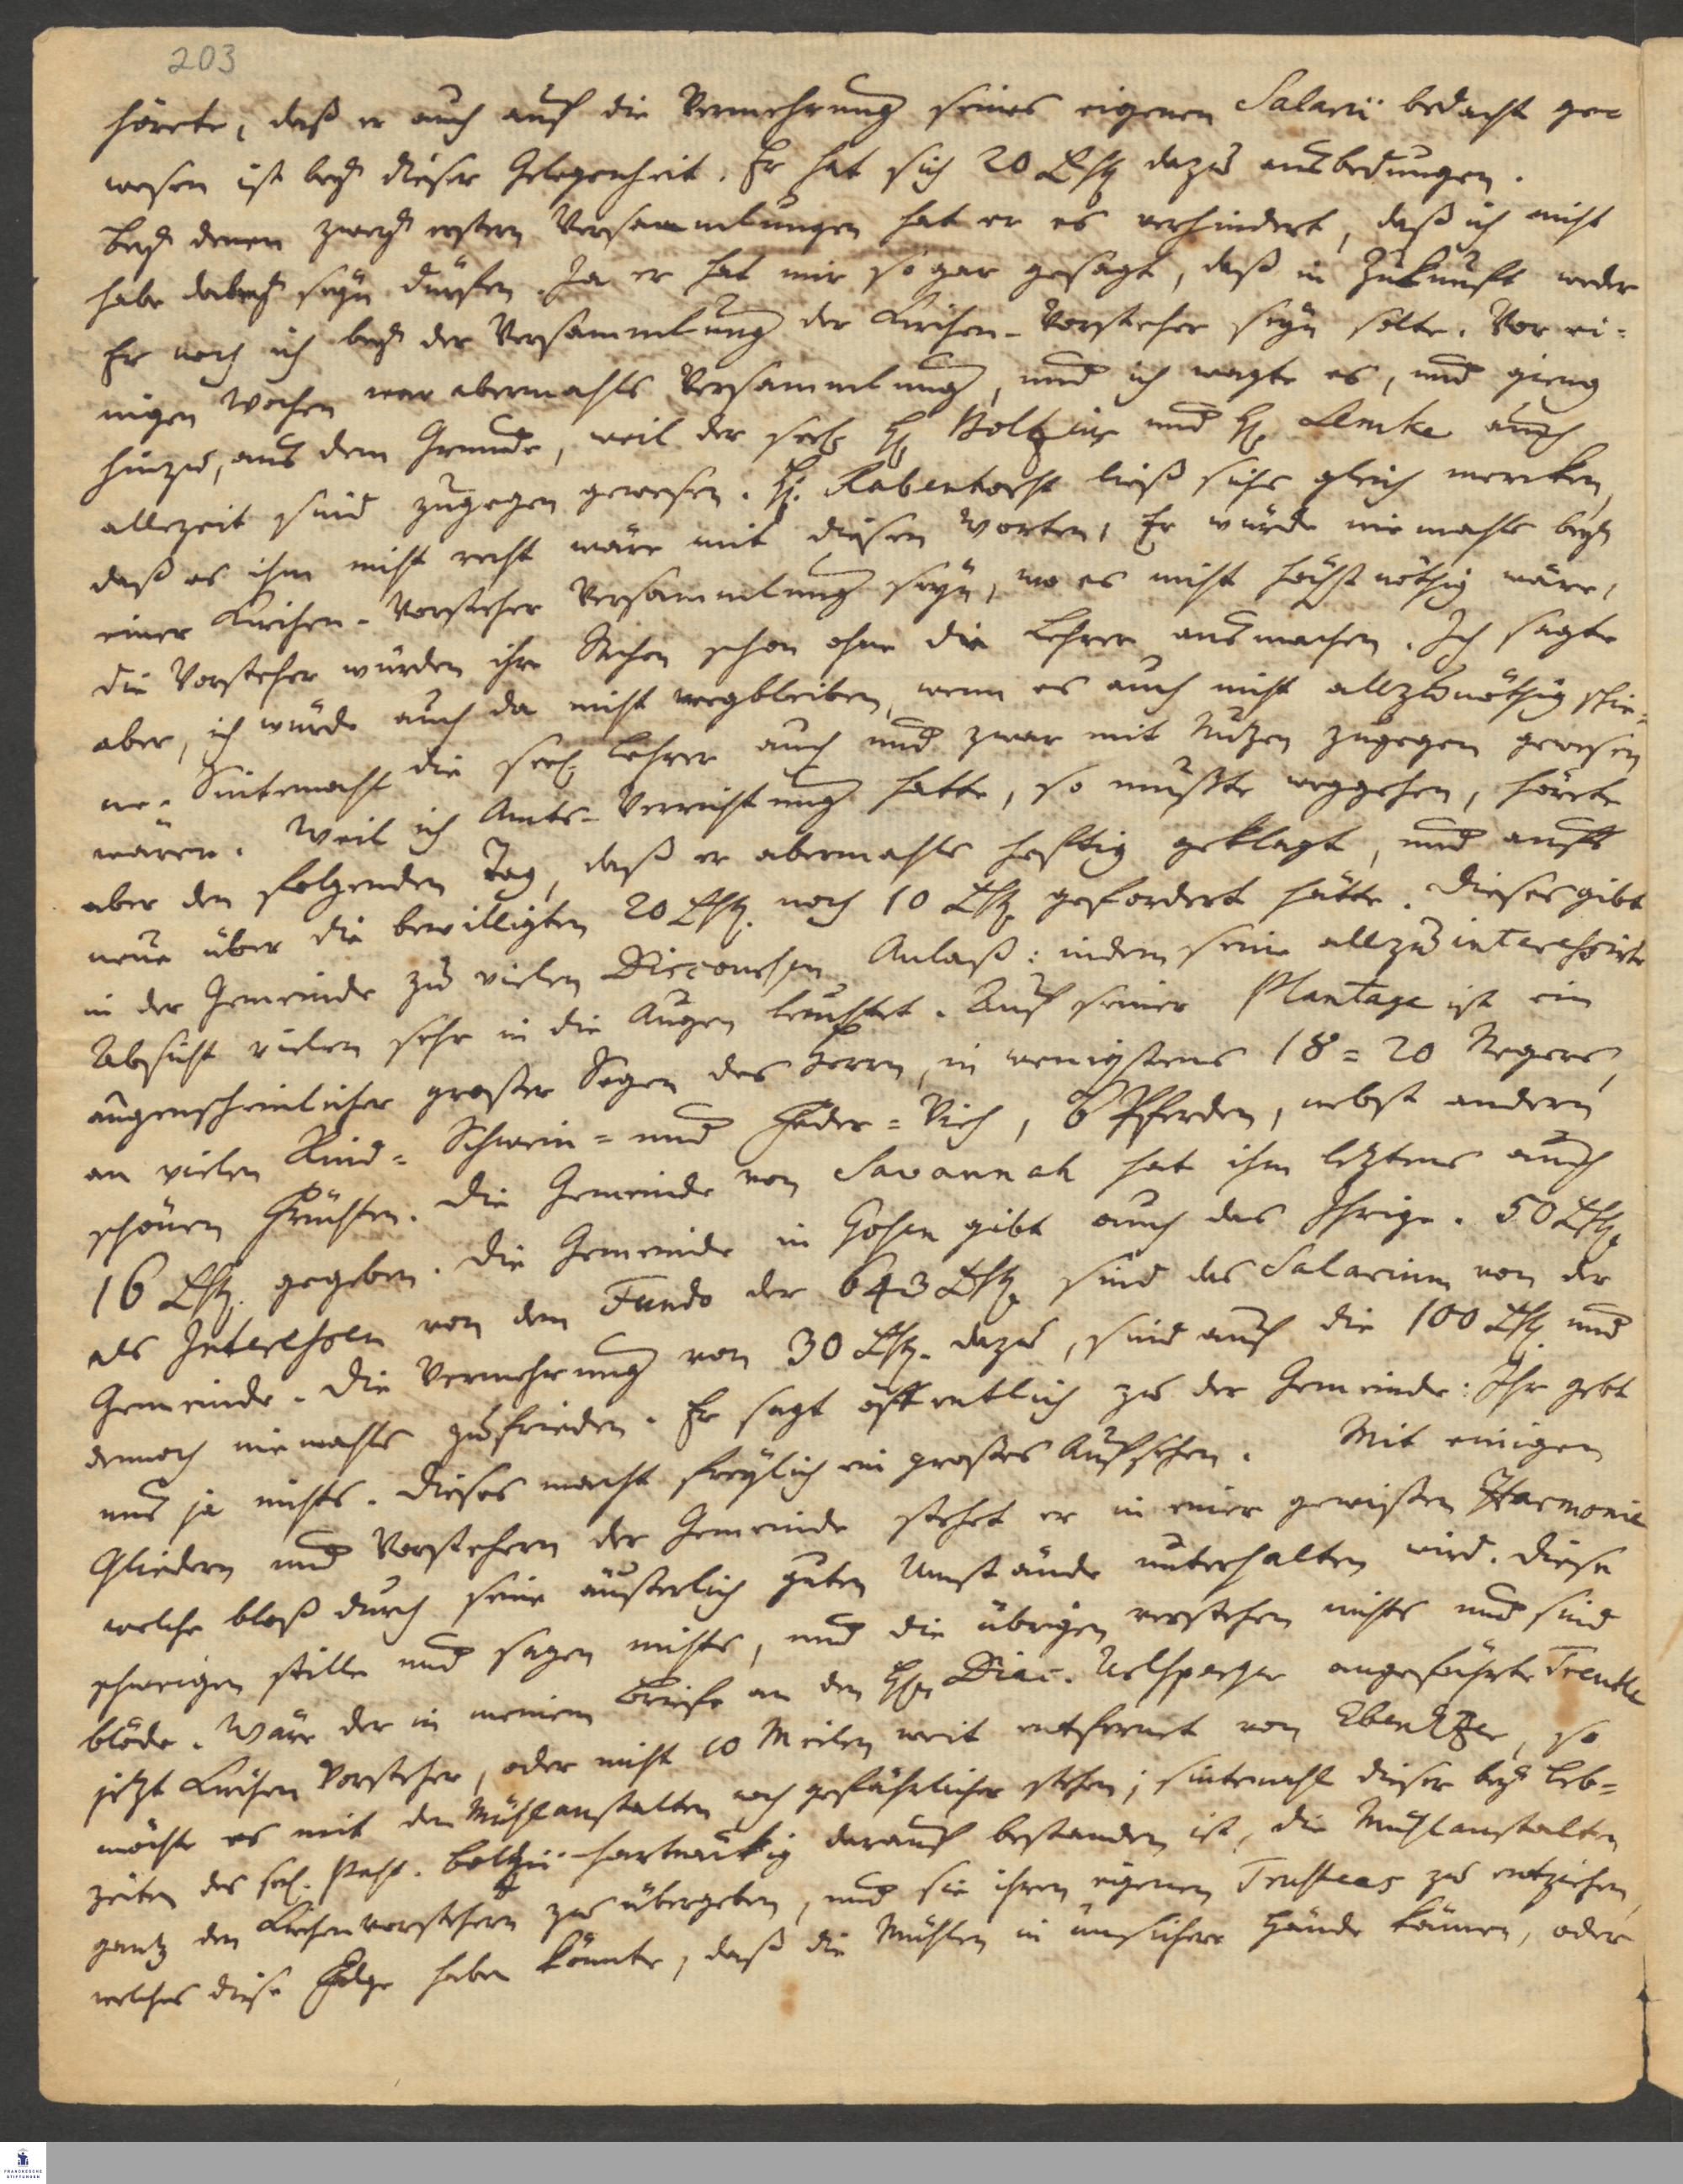 203
hörete, daß er auch auf die Vermehrung seines eigenen Salarii bedacht ge-
wesen ist bey dieser Gelegenheit. Er hat sich 20 Lstl. dazu ausbedungen.
Bey denen zwey erstern Versammlungen hat er es verhindert, daß ich nicht
habe dabey seyn dürfen. Ja er hat mir sogar gesagt, daß in Zukunft weder
Er noch ich bey der Versammlung der Kirchen-Vorsteher seyn solte. Vor ei-
nigen Wochen war abermahls Versammlung, und ich wagte es, und gieng
hinzu, aus dem Grunde, weil der seel. H. Boltzius und H. Lemke auch
allezeit sind zugegen gewesen. H. Rabenhorst ließ sichs gleich mercken,
daß es ihm nicht recht wäre mit diesen Worten, Er würde niemahls bey
einer Kirchen-Vorsteher Versammlung seyn, wo es nicht höchst nöthig wäre,
die Vorsteher würden ihre Sachen schon ohne die Lehrer ausmachen. Ich sagte
aber, ich würde auch da nicht wegbleiben, wenn es auch nicht allzunöthig schie-
ne. Sintemahl die seel. Lehrer auch und zwar mit Nutzen zugegen gewesen
wären. Weil ich Amts-Verrichtung hatte, so mußte weggehen, hörete
aber den folgenden Tag, daß er abermahls heftig geklagt, und aufs
neue über die bewilligten 20 Lstl. noch 10 Lstl. gefordert hätte. Dieses gibt
in der Gemeinde zu vielen Discoursen Anlaß: indem seine allzu interessirte
Absicht vielen sehr in die Augen leuchtet. Auf seiner Plantage ist ein
augenscheinlicher großer Segen des Herrn, in wenigstens 18=20 Negers,
an vielen Rind= Schwein= und Feder=Vieh, 6 Pferden, nebst andern
schönen Früchten. Die Gemeinde von Savannah hat ihm letztens auch
16 Lstl. gegeben. Die Gemeinde in Gosen gibt auch das Ihrige. 50 Lstl.
als Interessen von dem Fundo der 643 Lstl. sind das Salarium von der
Gemeinde. Die Vermehrung von 30 Lstl. dazu, sind auch die 100 Lstl. und
dennoch niemahls zufrieden. Er sagt öffentlich zu der Gemeinde: Ihr gebt
uns ja nichts. Dieses macht freylich ein großes Aufsehen. Mit einigen
Gliedern und Vorstehern der Gemeinde stehet er in einer gewißen Harmonie
welche bloß durch seine äußerlich guten Umstände unterhalten wird. Diese
schweigen stille und sagen nichts, und die übrigen verstehen nichts und sind
blöde. Wäre der in meinem Briefe an den Hn. Diac. Urlsperger angeführte Treutle
jetzt Kirchen Vorsteher, oder nicht 10 Meilen weit entfernet von Ebenezer, so
möchte es mit den Mühlanstalten noch gefährlicher stehen; sintemahl dieser bey Leb-
zeiten des seel. Past. Boltzii hartnäckig darauf bestanden ist, die Mühlanstalten
gantz den Kirchenvorstehern zu übergeben, und sie ihren eigenen Trustees zu entziehen,
welches diese Folge haben könnte, daß die Mühlen in unsichere Hände kämen, oder
FRANCKESCHE
STIFTUNGEN